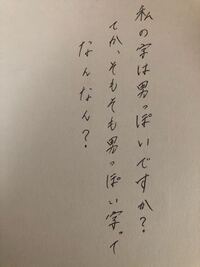 私の字は男っぽいですか?
てか、そもそも男っぽい字って
なんなん?